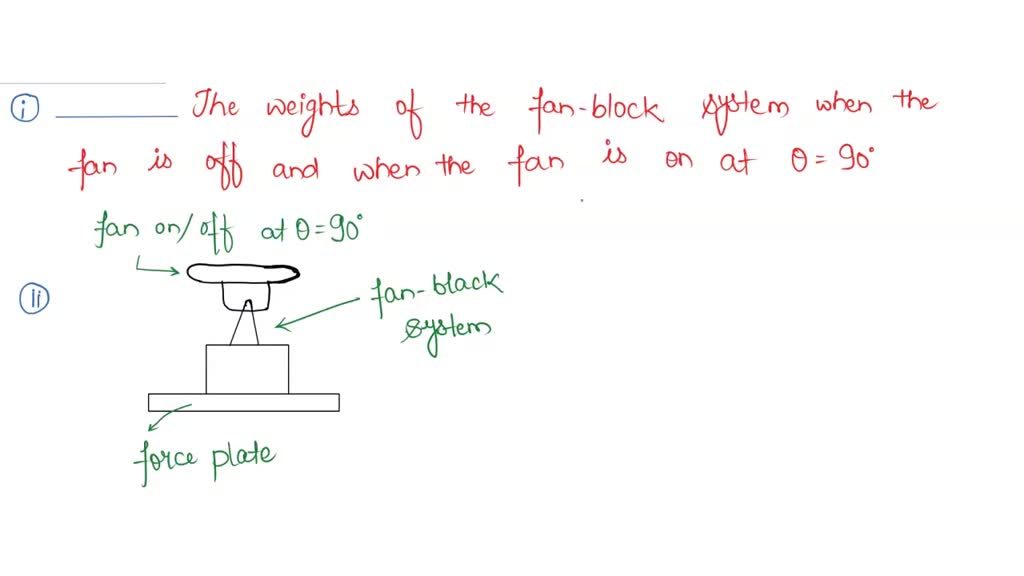 i ________ The weights of the fan-block system when the
fan is off and when the fan is on at θ = 90°
fan on/off at θ = 90°
ii
fan-black
system
force plate